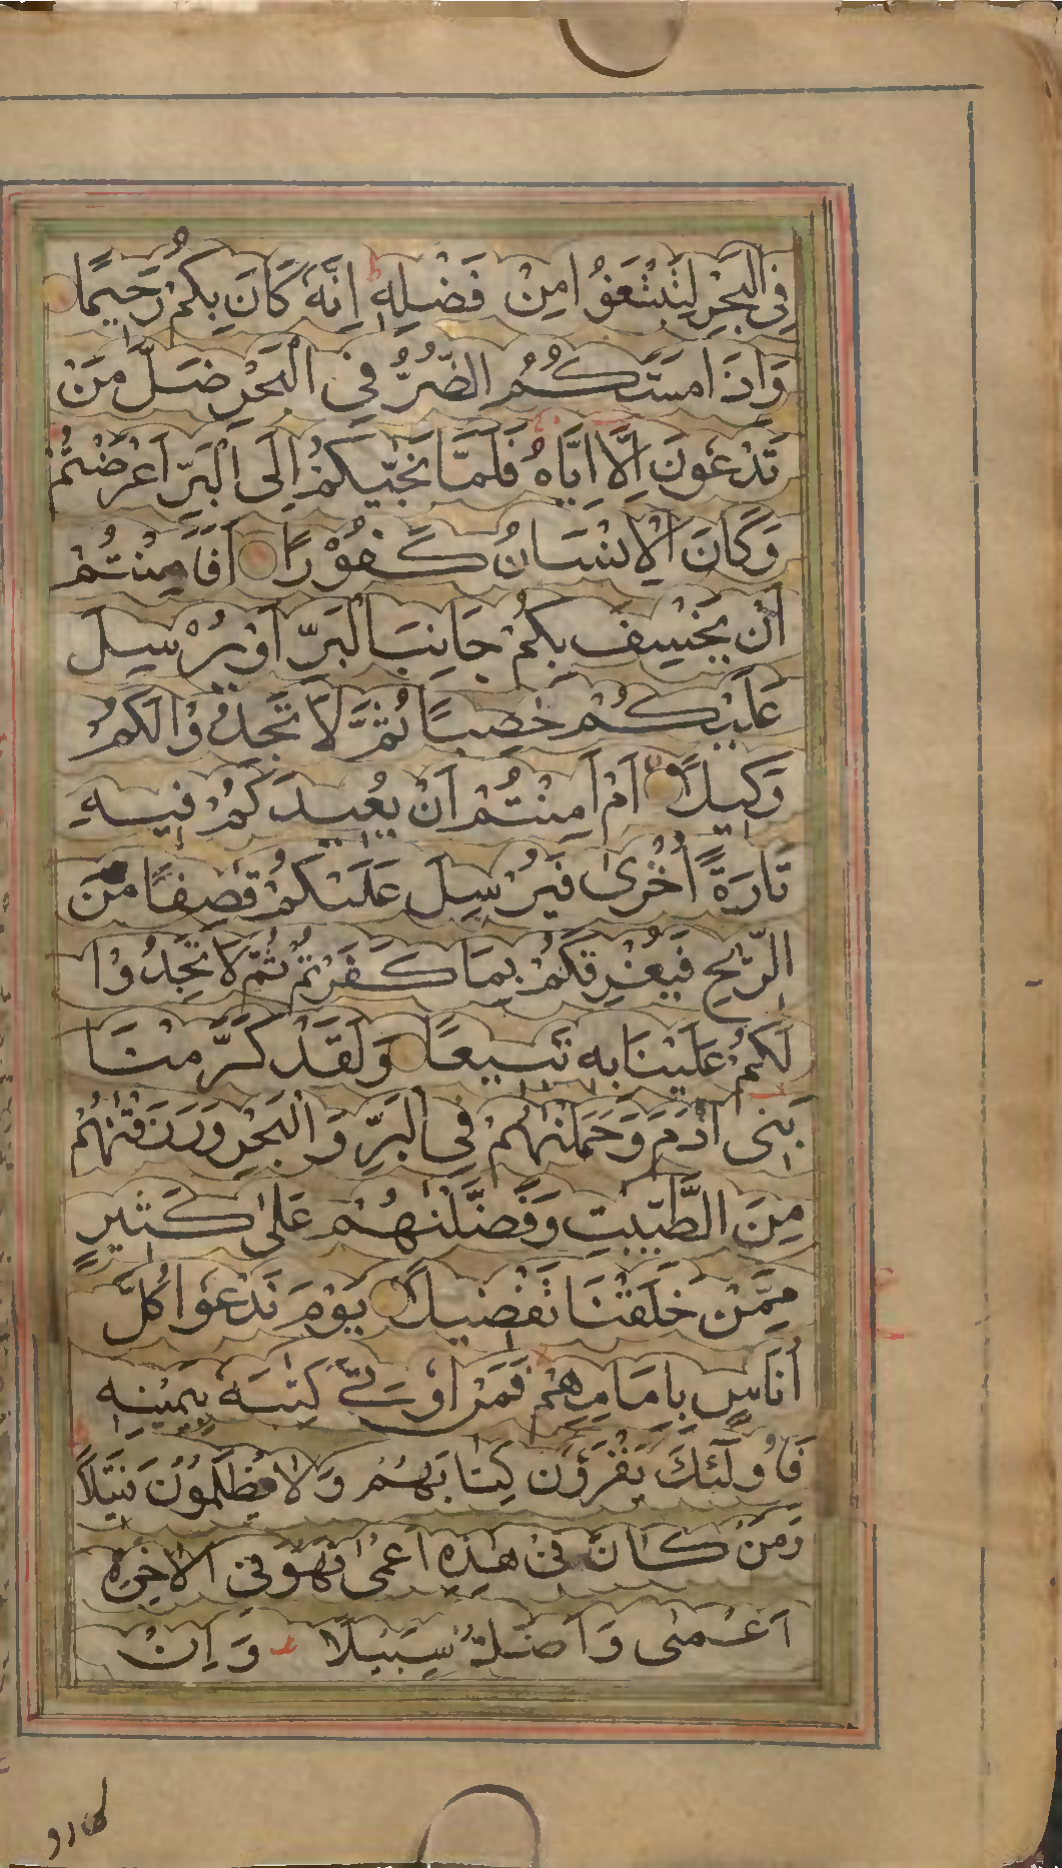 فِی الْبَحْرِ لِتَبْتَغُوْا مِنْ فَضْلِهٖ اِنَّهٗ كَانَ بِكُمْ رَحِیْمًا
وَاِذَا مَسَّكُمُ الضُّرُّ فِی الْبَحْرِ ضَلَّ مَنْ
تَدْعُوْنَ اِلَّا اِیَّاهُ فَلَمَّا نَجّٰىكُمْ اِلَی الْبَرِّ اَعْرَضْتُمْ
وَكَانَ الْاِنْسَانُ كَفُوْرًا اَفَاَمِنْتُمْ
اَنْ یَخْسِفَ بِكُمْ جَانِبَ الْبَرِّ اَوْ یُرْسِلَ
عَلَیْكُمْ حَاصِبًا ثُمَّ لَا تَجِدُوْا لَكُمْ
وَكِیْلًا اَمْ اَمِنْتُمْ اَنْ یُعِیْدَكُمْ فِیْهِ
تَارَةً اُخْرٰی فَیُرْسِلَ عَلَیْكُمْ قَصِفًا مِّنَ
الرِّیْحِ فَیُغْرِقَكُمْ بِمَا كَفَرْتُمْ ثُمَّ لَا تَجِدُوْا
لَكُمْ عَلَیْنَا بِهٖ تَبِیْعًا وَلَقَدْ كَرَّمْنَا
بَنِیْ اٰدَمَ وَحَمَلْنٰهُمْ فِی الْبَرِّ وَالْبَحْرِ وَرَزَقْنٰهُمْ
مِنَ الطَّیِّبٰتِ وَفَضَّلْنٰهُمْ عَلٰی كَثِیْرٍ
مِّمَّنْ خَلَقْنَا تَفْضِیْلًا یَوْمَ نَدْعُوْا كُلَّ
اُنَاسٍ بِاِمَامِهِمْ فَمَنْ اُوْتِیَ كِتٰبَهٗ بِیَمِیْنِهٖ
فَاُولٰٓئِكَ یَقْرَؤُنَ كِتَابَهُمْ وَلَا یُظْلَمُوْنَ فَتِیْلًا
وَمَنْ كَانَ فِیْ هٰذِهٖ اَعْمٰی فَهُوَ فِی الْاٰخِرَةِ
اَعْمٰی وَاَضَلُّ سَبِیْلًا وَاِنْ